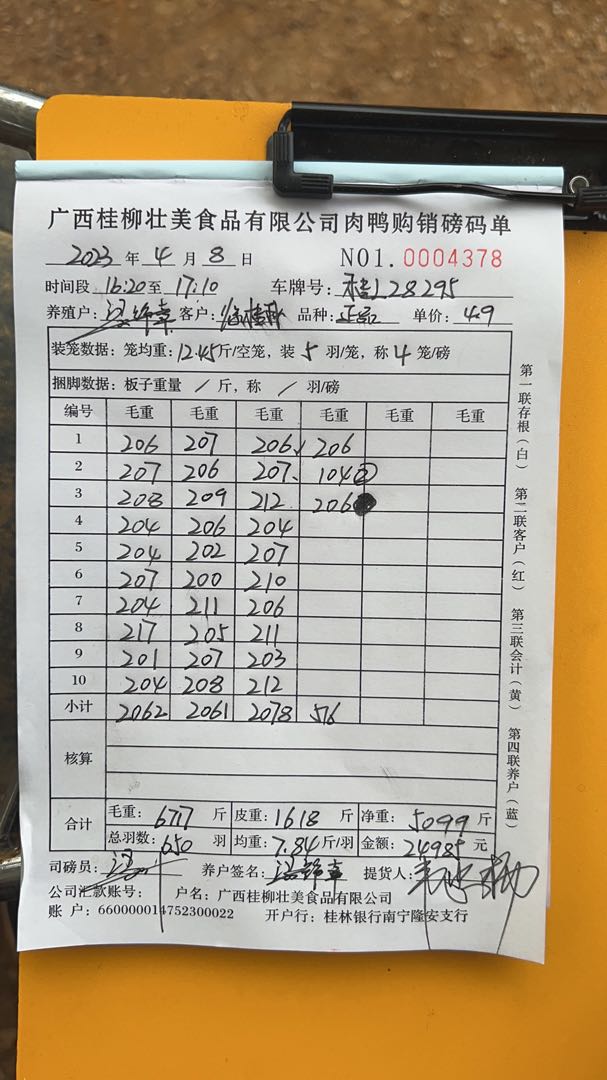 广西桂柳壮美食品有限公司肉鸭购销磅码单
2023 年 4 月 8 日 NO1.0004378
时间段 16:20 至 17:10 车牌号: 桂L28295
养殖户: 客户: 品种: 正品 单价: 4.9
装笼数据: 笼均重: 12.45 斤/空笼, 装 5 羽/笼, 称 4 笼/磅
捆脚数据: 板子重量 / 斤, 称 / 羽/磅
编号 毛重 毛重 毛重 毛重 毛重 毛重
1 206 207 206 206
2 207 206 207 104 ②
3 208 209 212 206
4 204 206 204
5 204 202 207
6 207 200 210
7 204 211 206
8 217 205 211
9 201 207 203
10 204 208 212
小计 2062 2061 2078 516
核算
合计 毛重: 6717 斤 皮重: 1618 斤 净重: 5099 斤
总羽数: 650 羽 均重: 7.84 斤/羽 金额: 24985 元
司磅员: 养户签名: 提货人:
公司汇款账号: 户名: 广西桂柳壮美食品有限公司
账 户: 660000014752300022 开户行: 桂林银行南宁隆安支行
第一联存根(白) 第二联客户(红) 第三联会计(黄) 第四联养户(蓝)